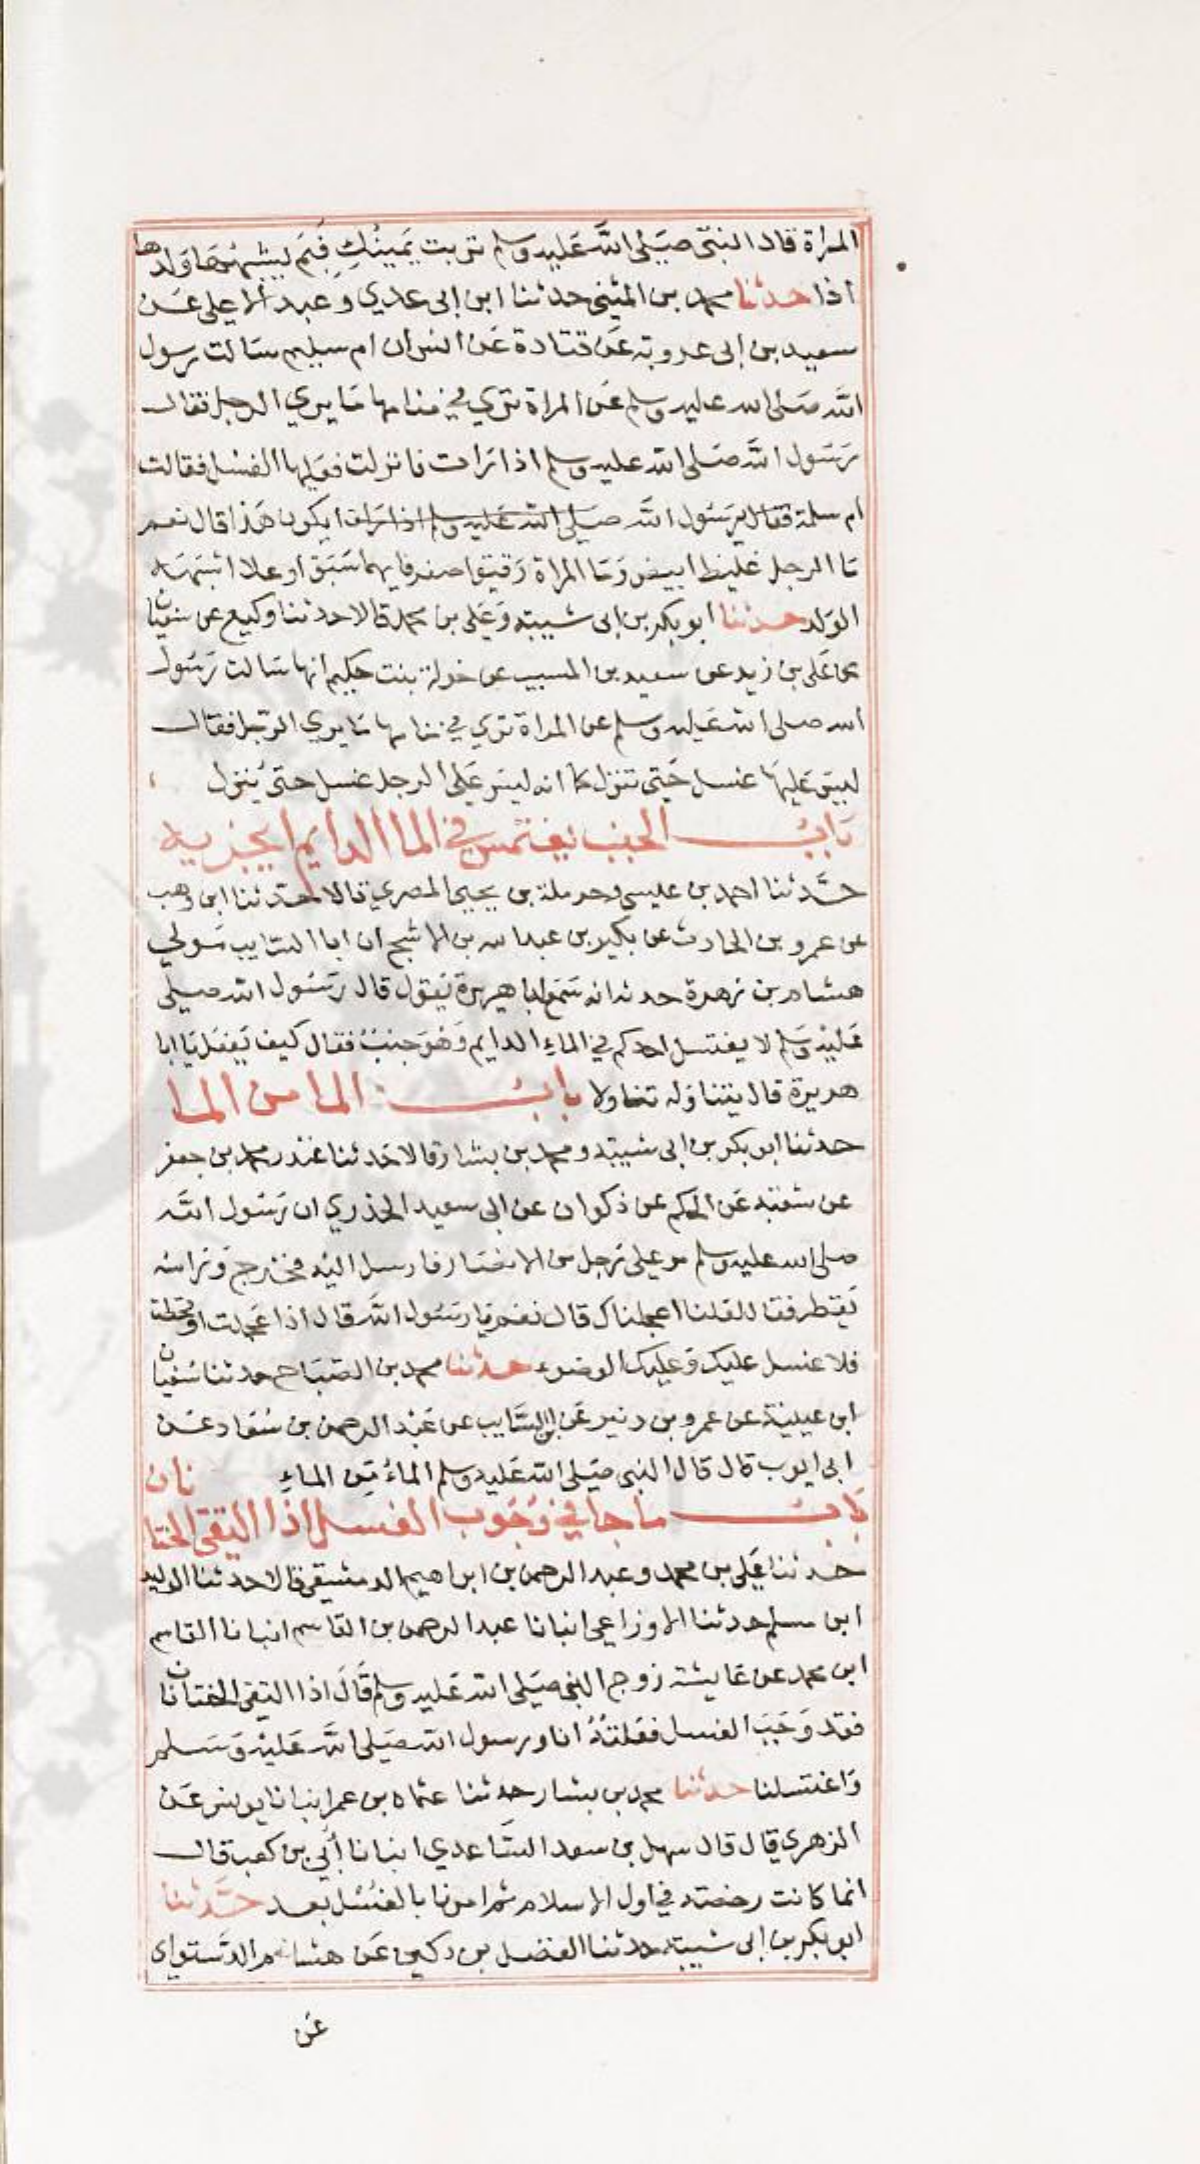 المراة قال النبي صلى الله عليه وسلم تربت يمينك فبم يشبهها ولدها
اذا حدثنا محمد بن المثنى حدثنا ابن ابي عدي و عبد الاعلى عن
سعيد بن ابي عروبة عن قتادة عن انس ان ام سليم سالت رسول
الله صلى الله عليه وسلم عن المراة ترى في منامها ما يرى الرجل فقال
رسول الله صلى الله عليه وسلم اذا رات فانزلت فعليها الغسل فقالت
ام سلمة فقال يرسول الله صلى الله عليه وسلم اذا رات ايكون هذا قال نعم
ما الرجل غليظ ابيض وما المراة رقيق اصفر فايهما سبق او علا اشبهه
الولد حدثنا ابو بكر بن ابي شيبة وعلي بن محمد قالا حدثنا وكيع عن سفيان
عن علي بن زيد عن سعيد بن المسيب عن خولة بنت حكيم انها سالت رسول
الله صلى الله عليه وسلم عن المراة ترى في منامها ما يرى الرجل فقال
ليس عليها غسل حتى تنزل كما انه ليس على الرجل غسل حتى ينزل
باب الجنب يغتمس في الما الدايم ايجزيه
حدثنا احمد بن عيسى وحرملة بن يحيى المصري قالا حدثنا ابن وهب
عن عمرو بن الحارث عن بكير بن عبد الله بن الاشج ان ابا السايب مولى
هشام بن زهرة حدثه انه سمع ابا هريرة يقول قال رسول الله صلى
عليه وسلم لا يغتسل احدكم في الماء الدايم وهو جنب فقال كيف يفعل يا ابا
هريرة قال يتناوله تناولا باب الما من الما
حدثنا ابو بكر بن ابي شيبة ومحمد بن بشار قالا حدثنا غندر محمد بن جعفر
عن شعبة عن الحكم عن ذكوان عن ابي سعيد الخدري ان رسول الله
صلى الله عليه وسلم مر على رجل من الانصار فارسل اليه فخرج وراسه
يقطر فقال لعلنا اعجلناك قال نعم يا رسول الله قال اذا عجلت او قحطت
فلا غسل عليك وعليك الوضوء حدثنا محمد بن الصباح حدثنا سفيان
ابن عيينة عن عمرو بن دنير عن ابن السايب عن عبد الرحمن بن سعاد عن
ابي ايوب قال قال النبي صلى الله عليه وسلم الماء من الماء
باب ما جا في وجوب الغسل اذا التقى الختانان
حدثنا علي بن محمد وعبد الرحمن بن ابراهيم الدمشقي قالا حدثنا الوليد
ابن مسلم حدثنا الاوزاعي انبانا عبد الرحمن بن القاسم انبانا القاسم
ابن محمد عن عايشة زوج النبي صلى الله عليه وسلم قال اذا التقى الختانان
فقد وجب الغسل فعلته انا ورسول الله صلى الله عليه وسلم
واغتسلنا حدثنا محمد بن بشار حدثنا عثمان بن عمر انبانا يونس عن
الزهري قال قال سهل بن سعد الساعدي انبانا أبي بن كعب قال
انما كانت رخصة في اول الاسلام ثم امرنا بالغسل بعد حدثنا
ابو بكر بن ابي شيبة حدثنا الفضل بن دكين عن هشام الدستواى
عن